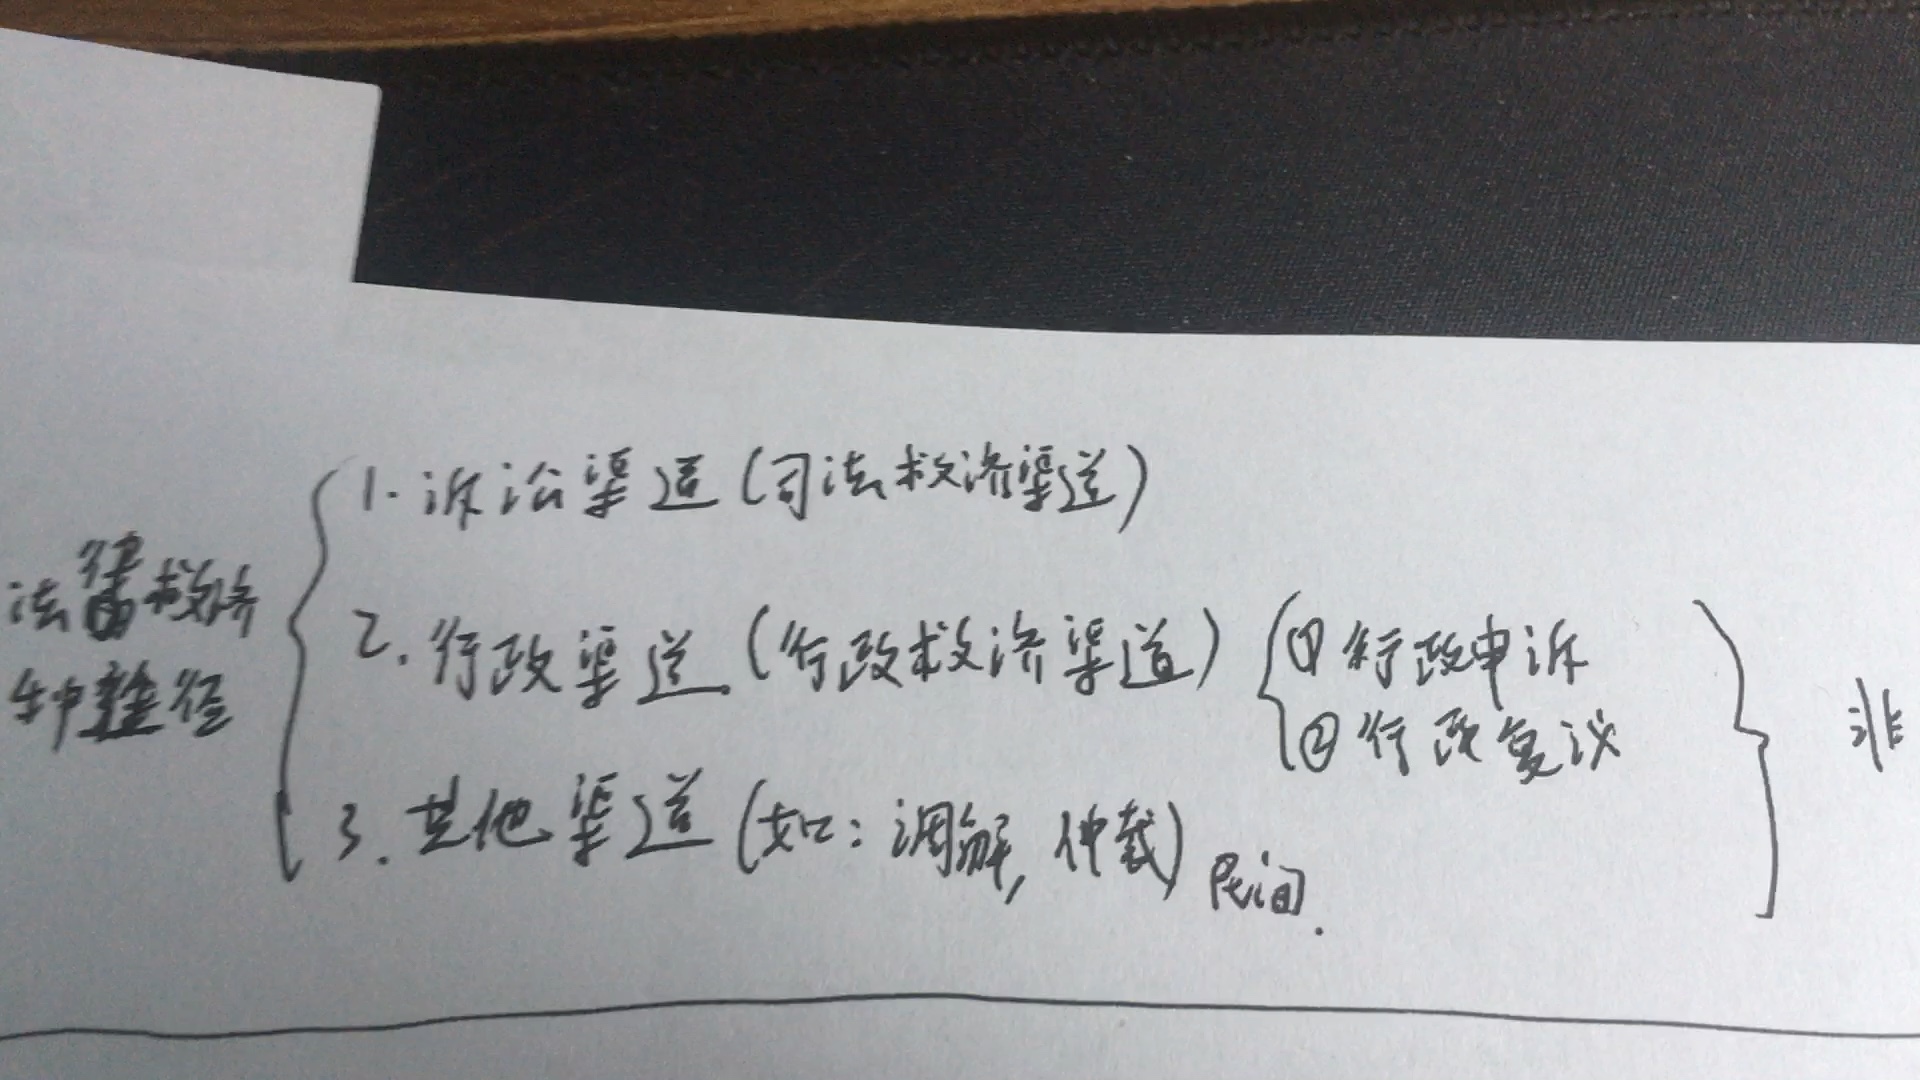 1. 诉讼渠道(司法救济渠道)
法律救济
2. 行政渠道.(行政救济渠道)
①行政申诉
②行政复议
径
非
3. 其他渠道(如:调解,仲裁)民间.